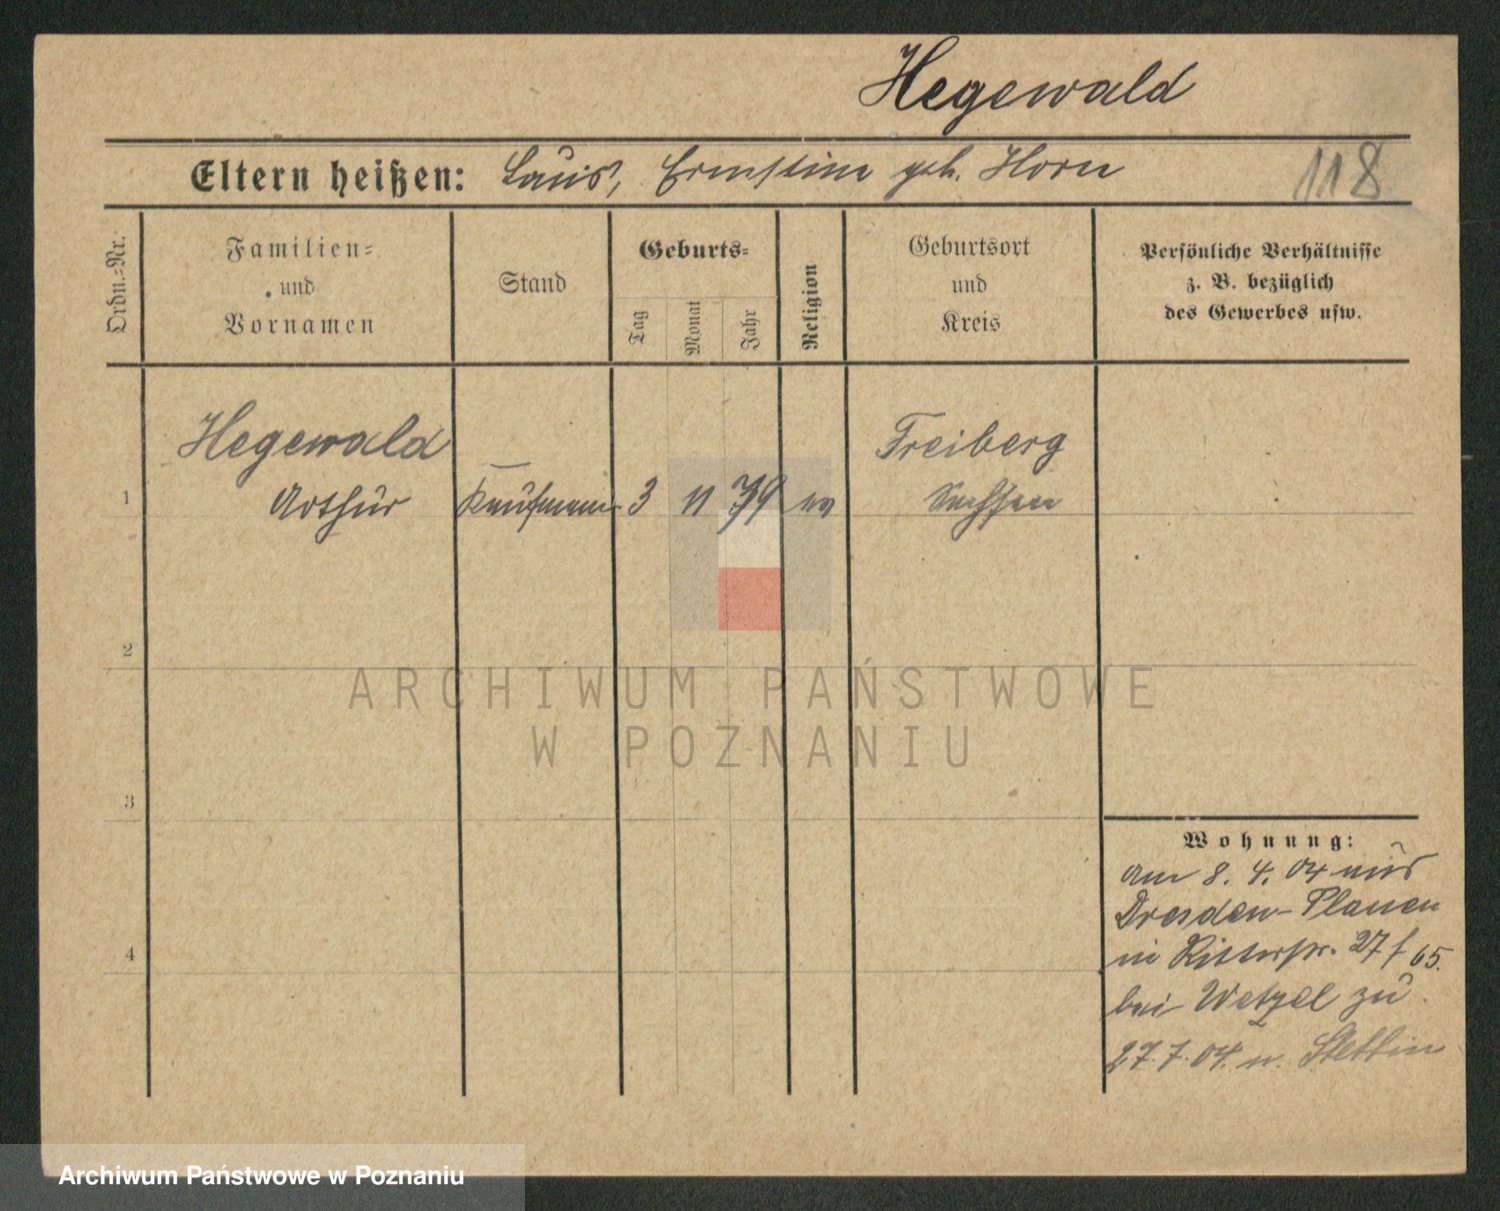 Hegewald
Eltern heißen: Louis, Ernstine geb. Horn
118
Ordn.=Nr.:
Familien=
und
Vornamen
Stand
Geburts=
Tag
Monat
Jahr
Religion
Geburtsort
und
Kreis
Persönliche Verhältnisse
z. B. bezüglich
des Gewerbes usw.
Hegewald
Freiberg
1 Arthur Kaufmann 3 11 79 ev Sachsen
2
ARCHIWUM PAŃSTWOWE
W POZNANIU
3
Wohnung:
am 8. 4. 04 aus
Dresden-Plauen
4
in Ritterstr. 27 65.
bei Wetzel zu.
27.7.04. n. Stettin
Archiwum Państwowe w Poznaniu